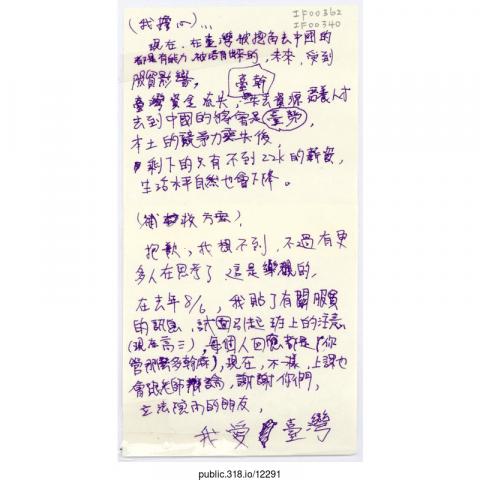 IF00362
IF00340
(我擔心)...
現在,在臺灣被挖角去中國的
都是有能力,被培育出來的,未來,受到
服貿影響,
臺幹
臺灣資金流失,失去資源 培養人才
去到中國的將會是臺勞,
本土的競爭力喪失後,
剩下的只有不到22k的薪資,
生活水平自然也會下降。
抱歉,我想不到,不過有更
多人在思考了 這是樂觀的,
在去年8/6,我貼了有關服貿
的訊息,試圖引起班上的注意
(現在高三),每個人回應都是「你
管那麼多幹麻」,現在,不一樣,上課也
會跟老師辯論,謝謝你們,
立法院內的朋友,
我愛臺灣
public.318.io/12291